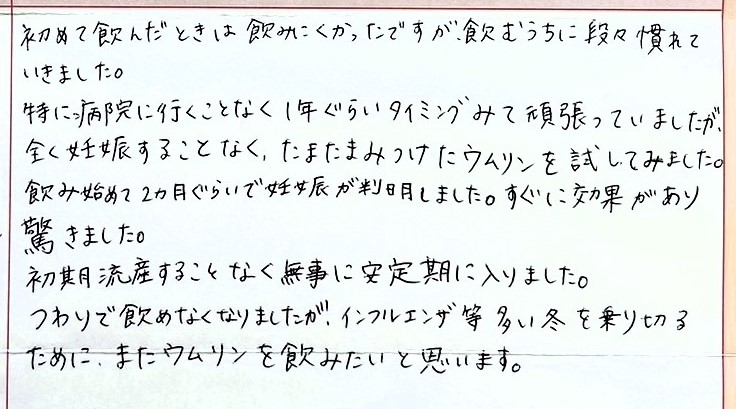 初めて飲んだときは飲みにくかったですが、飲むうちに段々慣れて
いきました。
特に病院に行くことなく1年ぐらいタイミングみて頑張っていましたが、
全く妊娠することなく、たまたまみつけたウムリンを試してみました。
飲み始めて2カ月ぐらいで妊娠が判明しました。すぐに効果があり
驚きました。
初期流産することなく無事に安定期に入りました。
つわりで飲めなくなりましたが、インフルエンザ等多い冬を乗り切る
ために、またウムリンを飲みたいと思います。